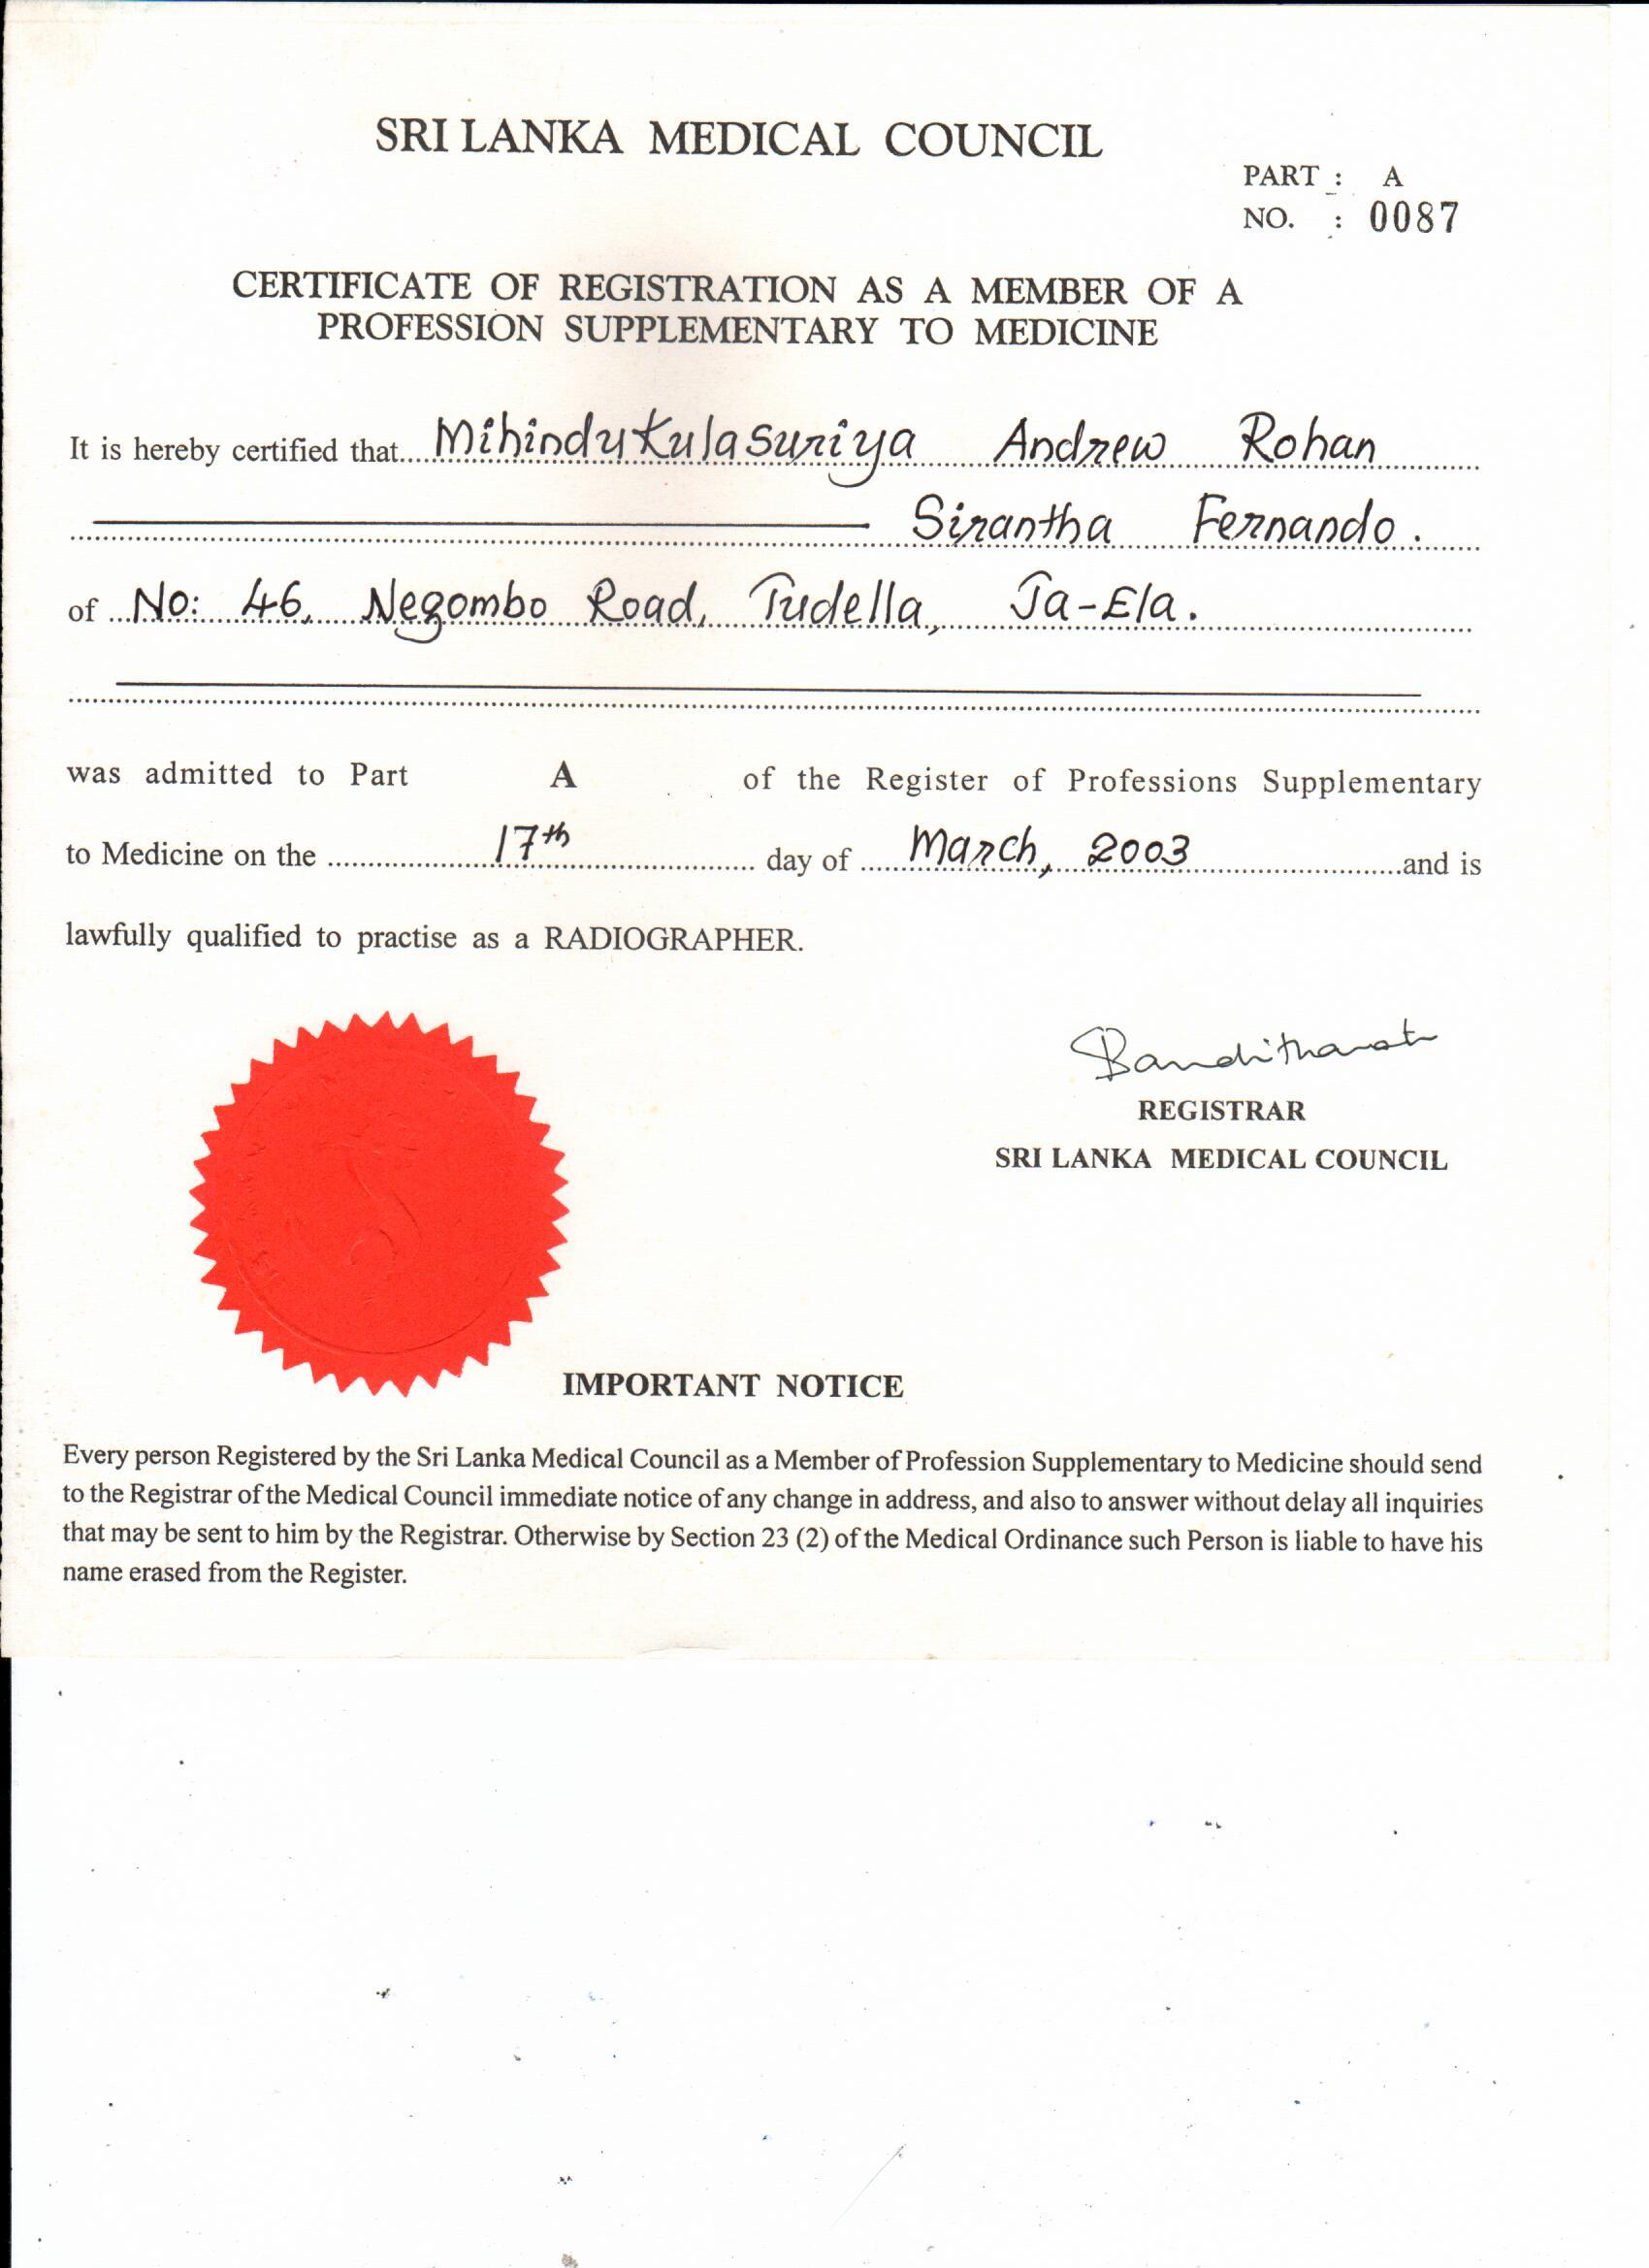 SRI LANKA MEDICAL COUNCIL
PART : A
NO. : 0087
CERTIFICATE OF REGISTRATION AS A MEMBER OF A
PROFESSION SUPPLEMENTARY TO MEDICINE
It is hereby certified that Mihindukulasuriya Andrew Rohan
Sirantha Fernando.
of No: 46, Negombo Road, Tudella, Ja-Ela.
was admitted to Part A of the Register of Professions Supplementary
to Medicine on the 17th day of March, 2003 and is
lawfully qualified to practise as a RADIOGRAPHER.
REGISTRAR
SRI LANKA MEDICAL COUNCIL
IMPORTANT NOTICE
Every person Registered by the Sri Lanka Medical Council as a Member of Profession Supplementary to Medicine should send
to the Registrar of the Medical Council immediate notice of any change in address, and also to answer without delay all inquiries
that may be sent to him by the Registrar. Otherwise by Section 23 (2) of the Medical Ordinance such Person is liable to have his
name erased from the Register.